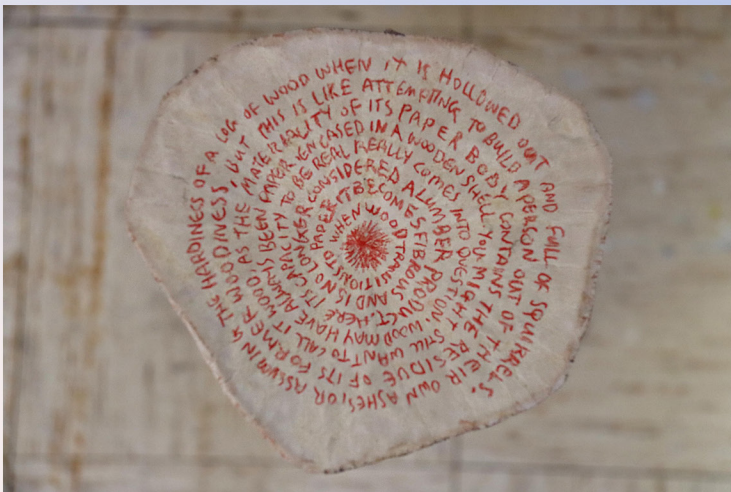 WHEN WOOD TRANSITIONS TO
PAPER IT BECOMES FIBROUS AND IS NO
LONGER CONSIDERED A LUMBER PRODUCT. HERE ITS
CAPACITY TO BE REAL REALLY COMES INTO QUESTION. WOOD MAY HAVE
ALWAYS BEEN PAPER ENCASED IN A WOODEN SHELL. YOU MIGHT STILL WANT TO CALL IT
WOOD AS THE MATERIALITY OF ITS PAPER BODY CONTAINS THE RESIDUE OF ITS FORMER
WOODINESS, BUT THIS IS LIKE ATTEMPTING TO BUILD A PERSON OUT OF THEIR OWN ASHES; OR ASSUMING
THE HARDINESS OF A LOG OF WOOD WHEN IT IS HOLLOWED OUT AND FULL OF SQUIRRELS.